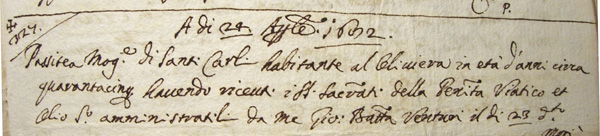 P.
A di 24 Ap.le 1692.
327.
Passitea Mog.e di Santi Carli habitante al Oliviera in età d'anni circa
quarantacinq havendo ricevuti i SS. Sacra.ti della Penit.a Viatico et
Olio S.o amministratili da me Gio: Batta Venturi il di 23 d.to
morì